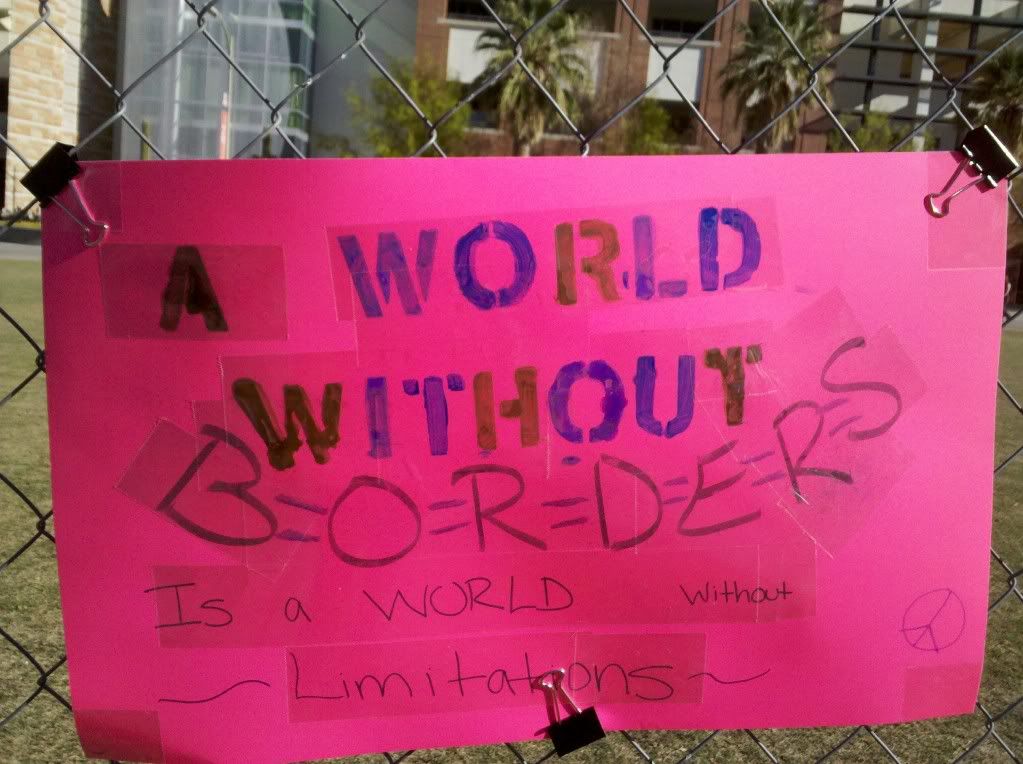 A WORLD
WITHOUT
B=O=R=D=E=R=S
Is a WORLD Without
~Limitations~